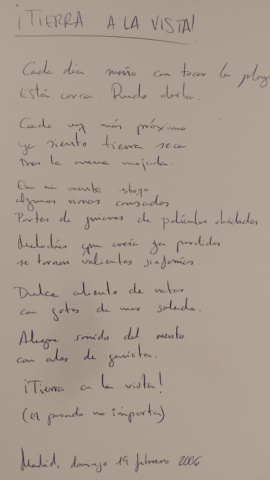 ¡TIERRA A LA VISTA!
Cada día sueño con tocar la playa
Está cerca. Puedo olerla.
Cada vez más próximo
ya siento tierra seca
tras la arena mojada.
En mi mente
algunas rimas cansadas
Partes de guiones de películas olvidadas
Melodías que creía ya perdidas
se tornan valientes sinfonías.
Dulce aliento de notas
con gotas de mar salada.
Alegre sonido del viento
con alas de gaviota.
¡Tierra a la vista!
(el pasado no importa)
Madrid, domingo 19 febrero 2006